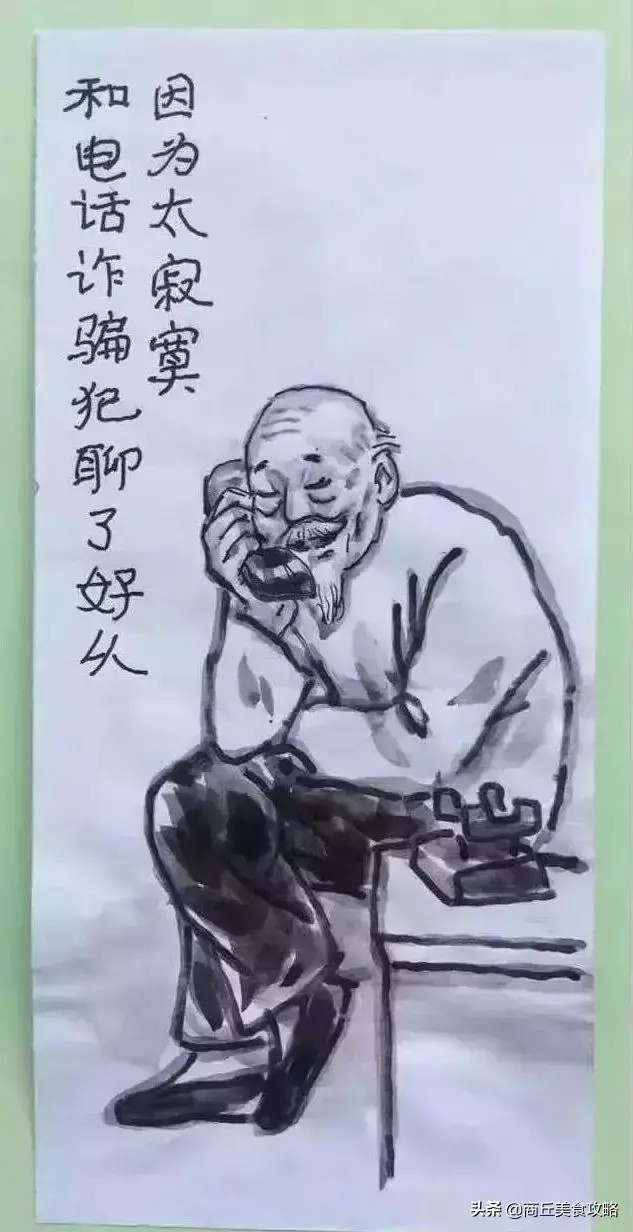 因为太寂寞
和电话诈骗犯聊了好久
头条 @商丘美食攻略